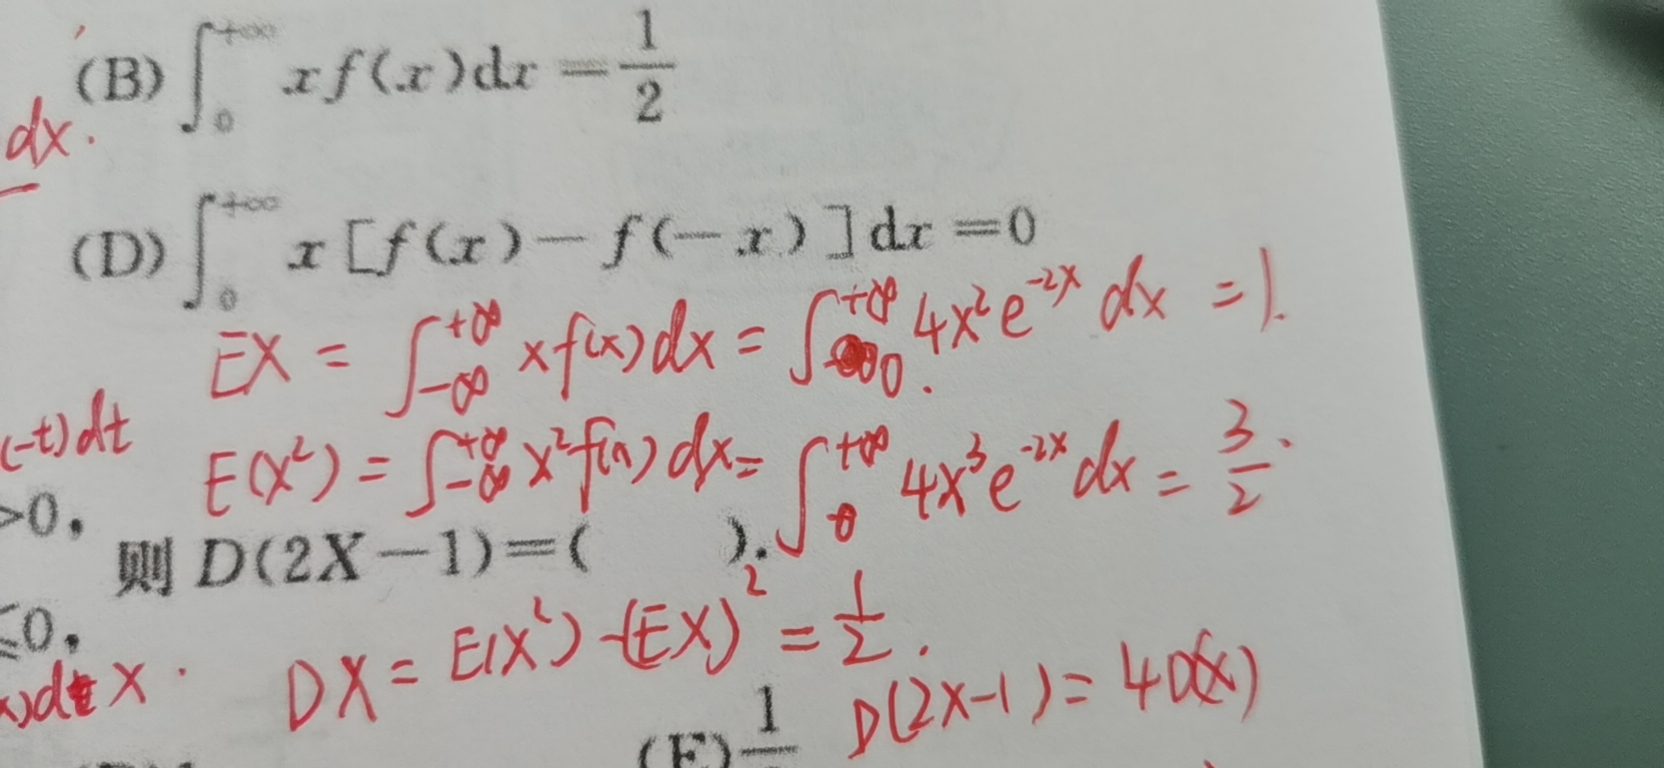 (B) ∫₀^{+∞} xf(x)dx = 1/2
dx.
(D) ∫₀^{+∞} x[f(x)-f(-x)]dx = 0
EX = ∫_{-∞}^{+∞} xf(x)dx = ∫₀^{+∞} 4x²e^{-2x} dx = 1.
(-t)dt
E(X²) = ∫_{-∞}^{+∞} x²f(x)dx = ∫₀^{+∞} 4x³e^{-2x} dx = 3/2.
>0,
则 D(2X-1)=( ).
≤0,
DX = E(X²)-(EX)² = 1/2.
x.
D(2X-1) = 4D(X)
(E) 1